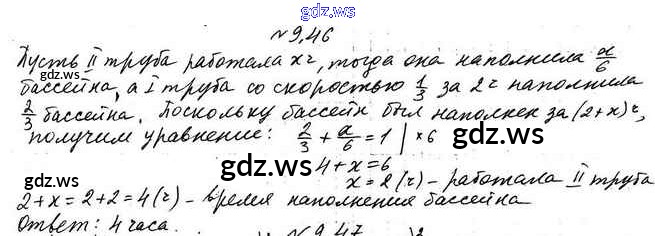 gdz.ws
№ 9,46
gdz.ws
Пусть II труба работала x ч, тогда она наполнила x/6
gdz.ws
бассейна, а I труба со скоростью 1/3 за 2 ч наполнила
2/3 бассейна. Поскольку бассейн был наполнен за (2+x) ч,
получим уравнение: 2/3 + x/6 = 1 | ×6
gdz.ws gdz.ws
4 + x = 6
x = 2 (ч) – работала II труба
2 + x = 2 + 2 = 4 (ч) – время наполнения бассейна
gdz.ws
Ответ: 4 часа.
№ 9,47